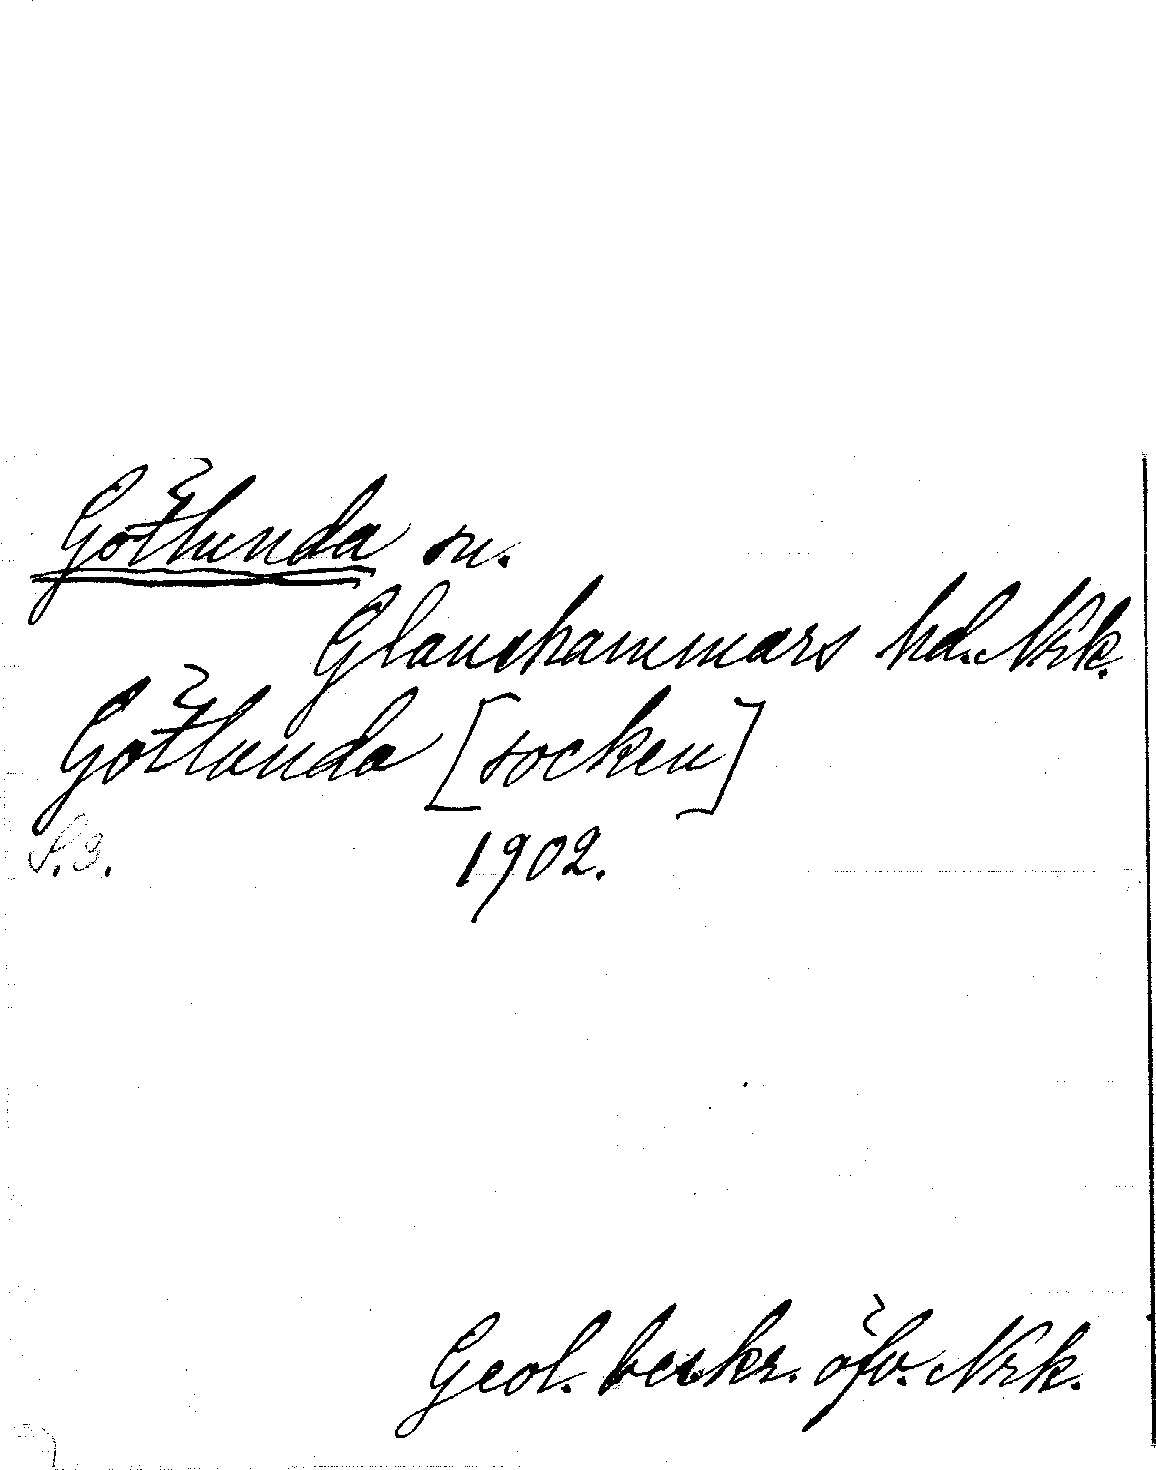 Götlunda sn.
Glanshammars hd. Nrk.
Götlunda [socken]
S.3. 1902.
Geol. beskr. öfv. Nrk.